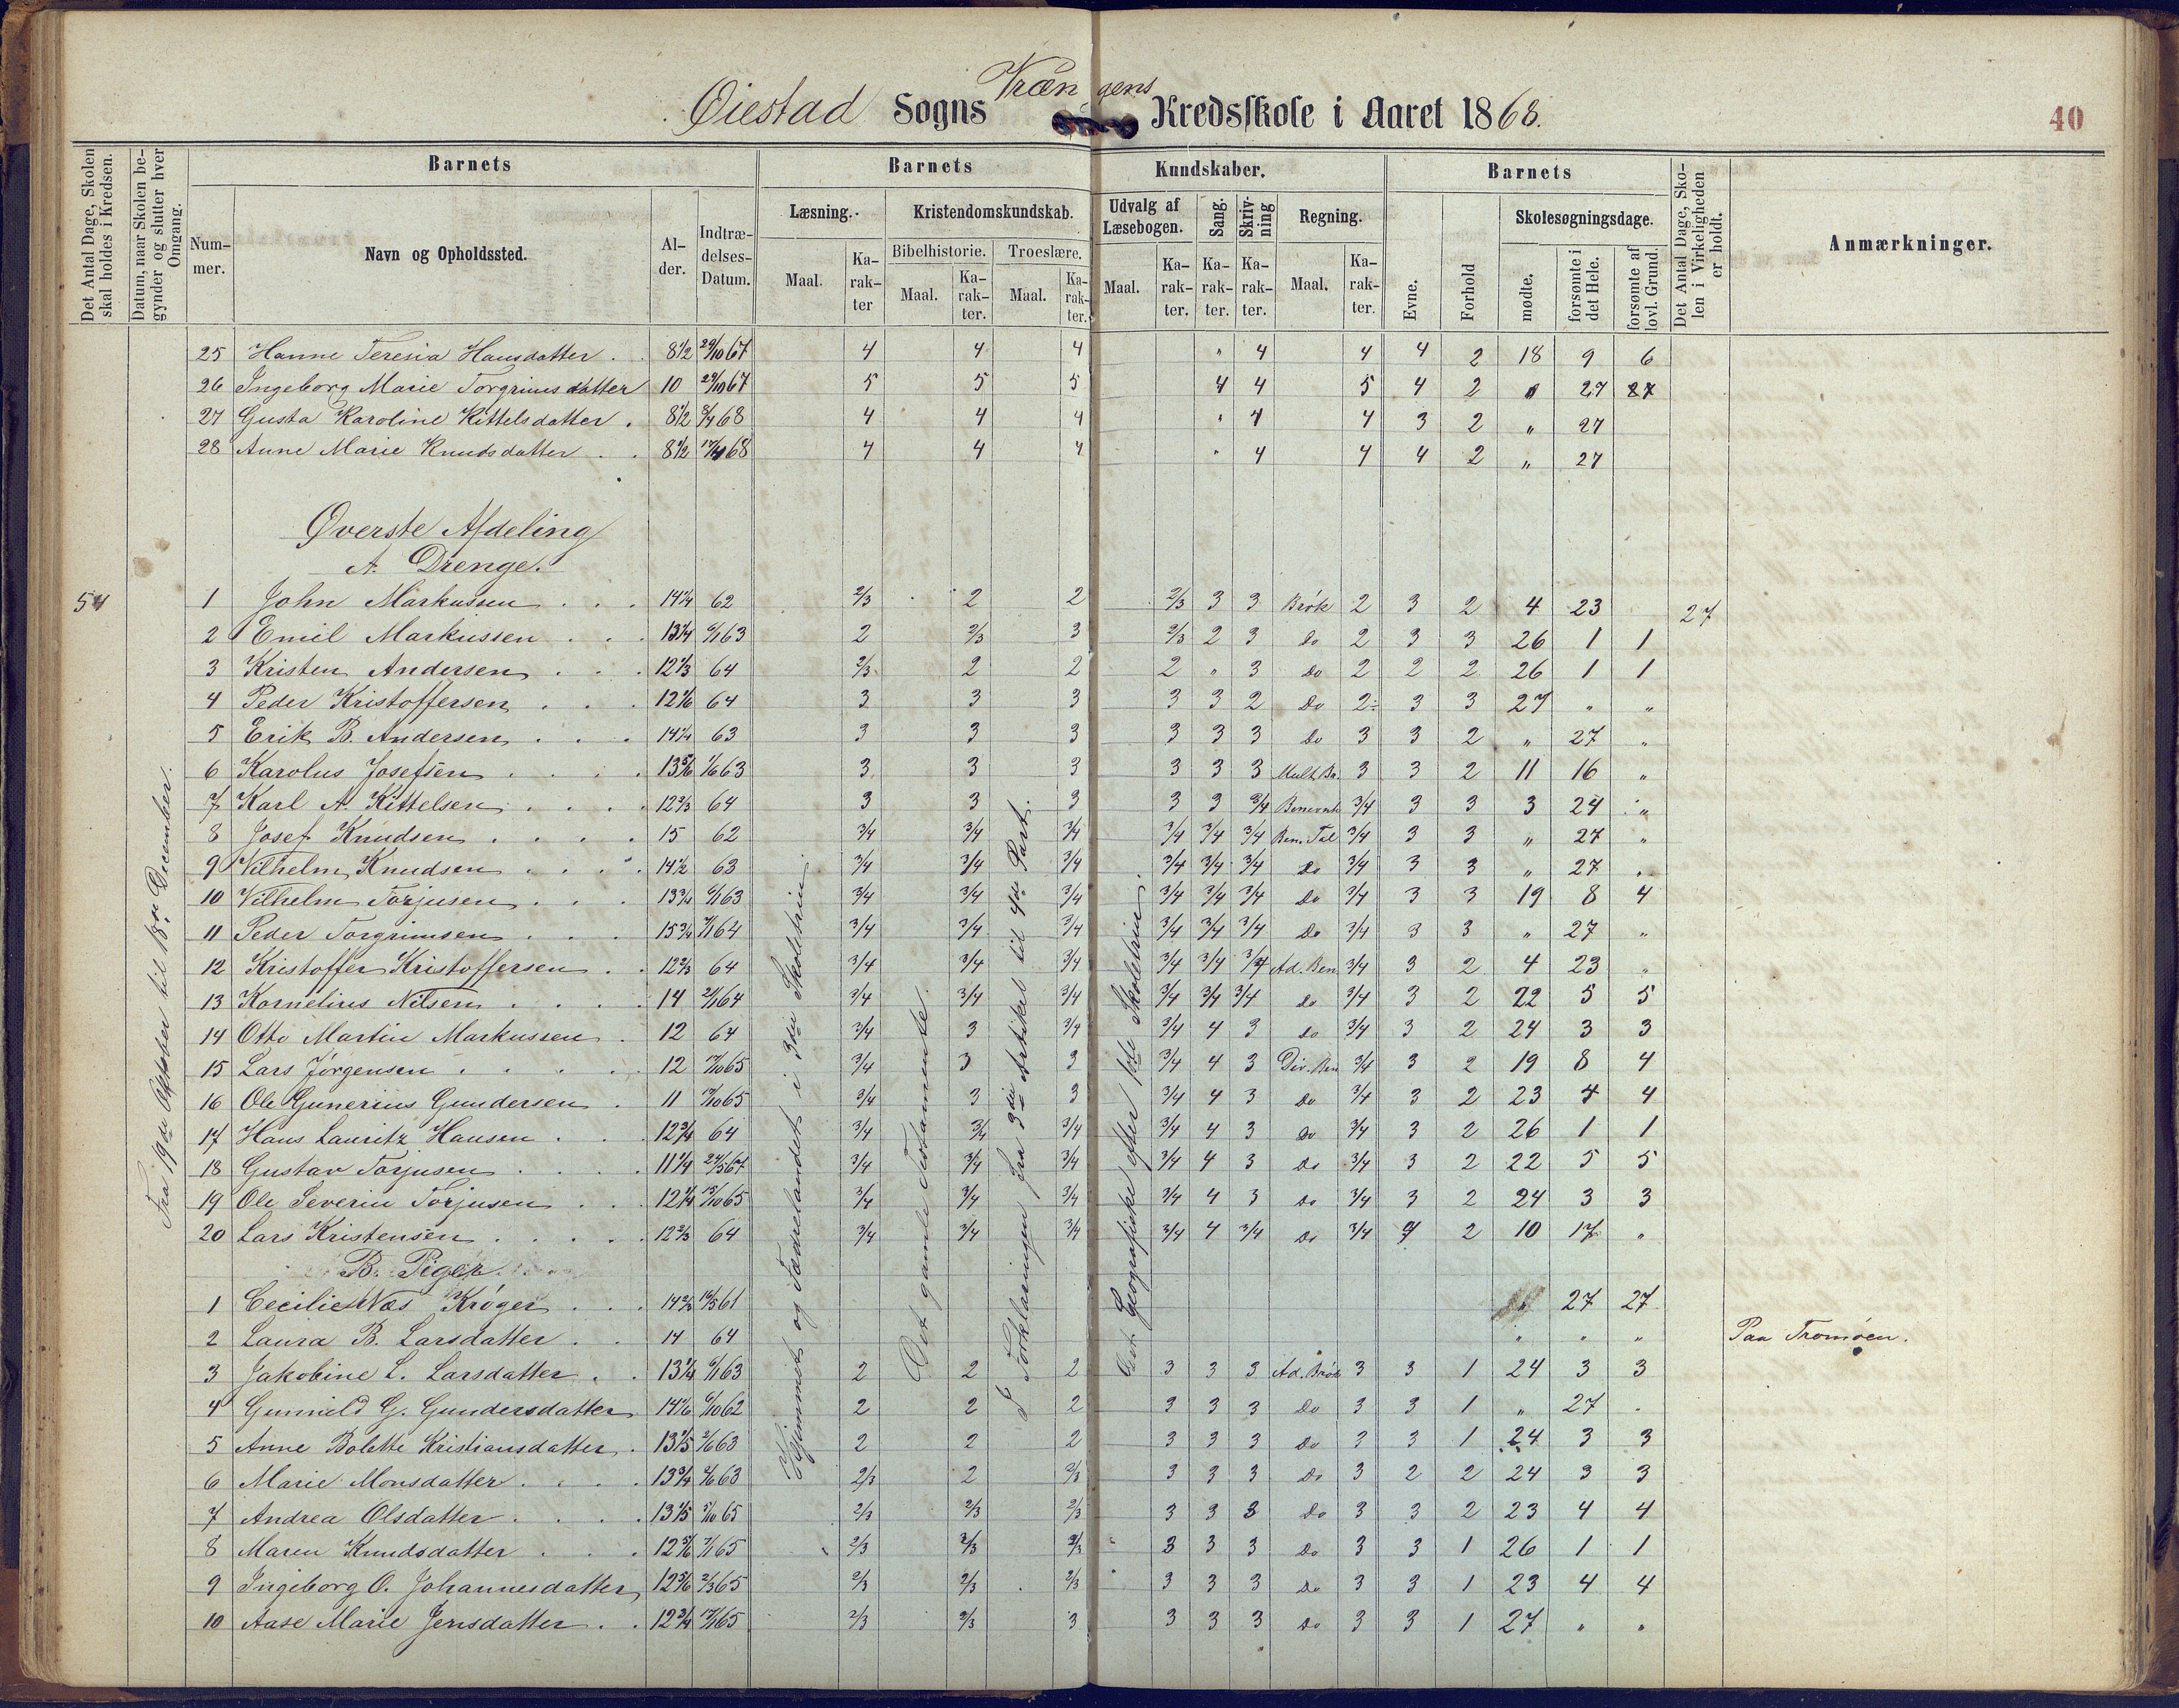 Vrængens
Øiestad Sogns Kredsskole i Aaret 1868.
40
Det Antal Dage, Skolen skal holdes i Kredsen.
Datum, naar Skolen begynder og slutter hver Omgang.
Barnets
Barnets
Kundskaber.
Barnets
Det Antal Dage, Skolen i Virkeligheden er holdt.
Anmærkninger.
Nummer.
Navn og Opholdssted.
Alder.
Indtrædelses-Datum.
Læsning.
Kristendomskundskab.
Udvalg af Læsebogen.
Sang.
Skrivning
Regning.
Evne.
Forhold
Skolesøgningsdage.
Bibelhistorie.
Troeslære.
Maal.
Karakter
Maal.
Karakter.
Maal.
Karakter.
Maal.
Karakter.
Karakter.
Karakter.
Maal.
Karakter.
mødte.
forsømte i det Hele.
forsømte af lovl. Grund.
25 Hanne Teresia Hansdatter . . 8½ 29/10 67 4 4 4 " 4 4 4 2 18 9 6
26 Ingeborg Marie Torgrimsdatter 10 29/10 67 5 5 5 4 4 5 4 2 " 27 27
27 Gusta Karoline Kittelsdatter . 8½ 68 4 4 4 " 4 4 3 2 " 27
28 Anne Marie Knudsdatter . . 8½ 68 4 4 4 " 4 4 4 2 " 27
Øverste Afdeling
A. Drenge.
54
Fra 19de Oktober til 18de December.
1 John Markussen . . . 14¼ 62 2/3 2 2 2/3 3 3 Brøk 2 3 2 4 23 27
2 Emil Markussen . . . 13¼ 63 2 2/3 3 2/3 2 3 Do 2 3 3 26 1 1
3 Kristen Andersen . . . 12⅓ 64 2/3 2 2 2 " 3 Do 2 2 2 26 1 1
4 Peder Kristoffersen . . . 12 64 3 3 3 3 3 2 Do 2÷ 3 3 27 " "
5 Erik B. Andersen . . . 14¼ 63 3 3 3 3 3 3 Do 3 3 2 " 27 "
6 Karolus Josefsen . . . 13 63 3 3 3 3 3 3 Mult. Br. 3 3 2 11 16 "
7 Karl A. Kittelsen . . . 12⅔ 64 3 3 3 3 3 3/4 3/4 3 3 3 24 "
8 Josef Knudsen . . . . 15 62 3/4 3/4 3/4 3/4 3/4 3/4 Ben. Tal 3/4 3 3 " 27 "
9 Vilhelm Knudsen . . . . 14½ 63 3/4 3/4 3/4 3/4 3/4 3/4 Do 3/4 3 3 " 27 "
10 Vilhelm Torjusen . . . 13¾ 63 3/4 3/4 3/4 3/4 3/4 3/4 Do 3/4 3 3 19 8 4
11 Peder Torgrimsen . . . 15¾ 64 3/4 3/4 3/4 3/4 3/4 3/4 Do 3/4 3 3 " 27 "
12 Kristoffer Kristoffersen . . 12⅔ 64 3/4 3/4 3/4 3/4 3/4 3/4 Ad. Ben 3/4 3 2 4 23 "
13 Kornelius Nilsen . . . . 14 64 3/4 3/4 3/4 3/4 3/4 3/4 Do 3/4 3 2 22 5 5
14 Otto Martin Markussen . 12 64 3/4 3 3/4 3/4 4 3 Do 3/4 3 2 24 3 3
15 Lars Jørgensen . . . . . 12 65 3/4 3 3 3/4 4 3 Div. Ben 3/4 3 2 19 8 4
16 Ole Gunerius Gundersen . 11 65 3/4 3 3 3/4 4 3 Do 3/4 3 2 23 4 4
17 Hans Lauritz Hansen . . 12¾ 64 3/4 3/4 3/4 3/4 4 3 Do 3/4 3 2 26 1 1
18 Gustav Torjusen . . . . 11¼ 67 3/4 3/4 3/4 3/4 4 3 Do 3/4 3 2 22 5 5
19 Ole Severin Torjusen . . . 12¼ 65 3/4 3/4 3/4 3/4 4 3 Do 3/4 3 2 24 3 3
20 Lars Kristensen . . . . . 12⅔ 64 3/4 3/4 3/4 3/4 4 3/4 Do 3/4 2 10 17 "
B. Piger
1 Cecilie Næs Krøger . . . 14⅔ 61 " 27 27
2 Laura B. Larsdatter . . 14 64 " " " Paa Tromøen.
3 Jakobine L. Larsdatter . . 13¼ 63 2 2 2 3 3 3 Ad. Brøk 3 3 1 24 3 3
4 Gunnild G. Gundersdatter 14 62 2 2 2 3 3 3 Do 3 3 1 " 27 "
5 Anne Bolette Kristiansdatter . 13 63 2 2 2 3 3 3 Do 3 3 1 24 3 3
6 Marie Monsdatter . . . . 13¾ 63 2/3 2 2/3 3 3 3 Do 3 2 2 24 3 3
7 Andrea Olsdatter . . . . 13 65 2/3 2/3 2/3 3 3 3 Do 3 3 2 23 4 4
8 Maren Knudsdatter . . . 12 65 2/3 2/3 2/3 3 3 3 Do 3 3 1 26 1 1
9 Ingeborg O. Johannesdatter 12 65 2/3 2/3 2/3 3 3 3 Do 3 3 1 23 4 4
10 Aase Marie Jensdatter . . 12¾ 65 2/3 2/3 3 3 3 3 Do 3 3 1 27 " "
Hjemmet og Fædrelandet i 3die Skoletrin.
Det gamle Testamente.
I Forklaringen fra 3die Artikel til 4de Part.
Geografiske efter Skoletrin.